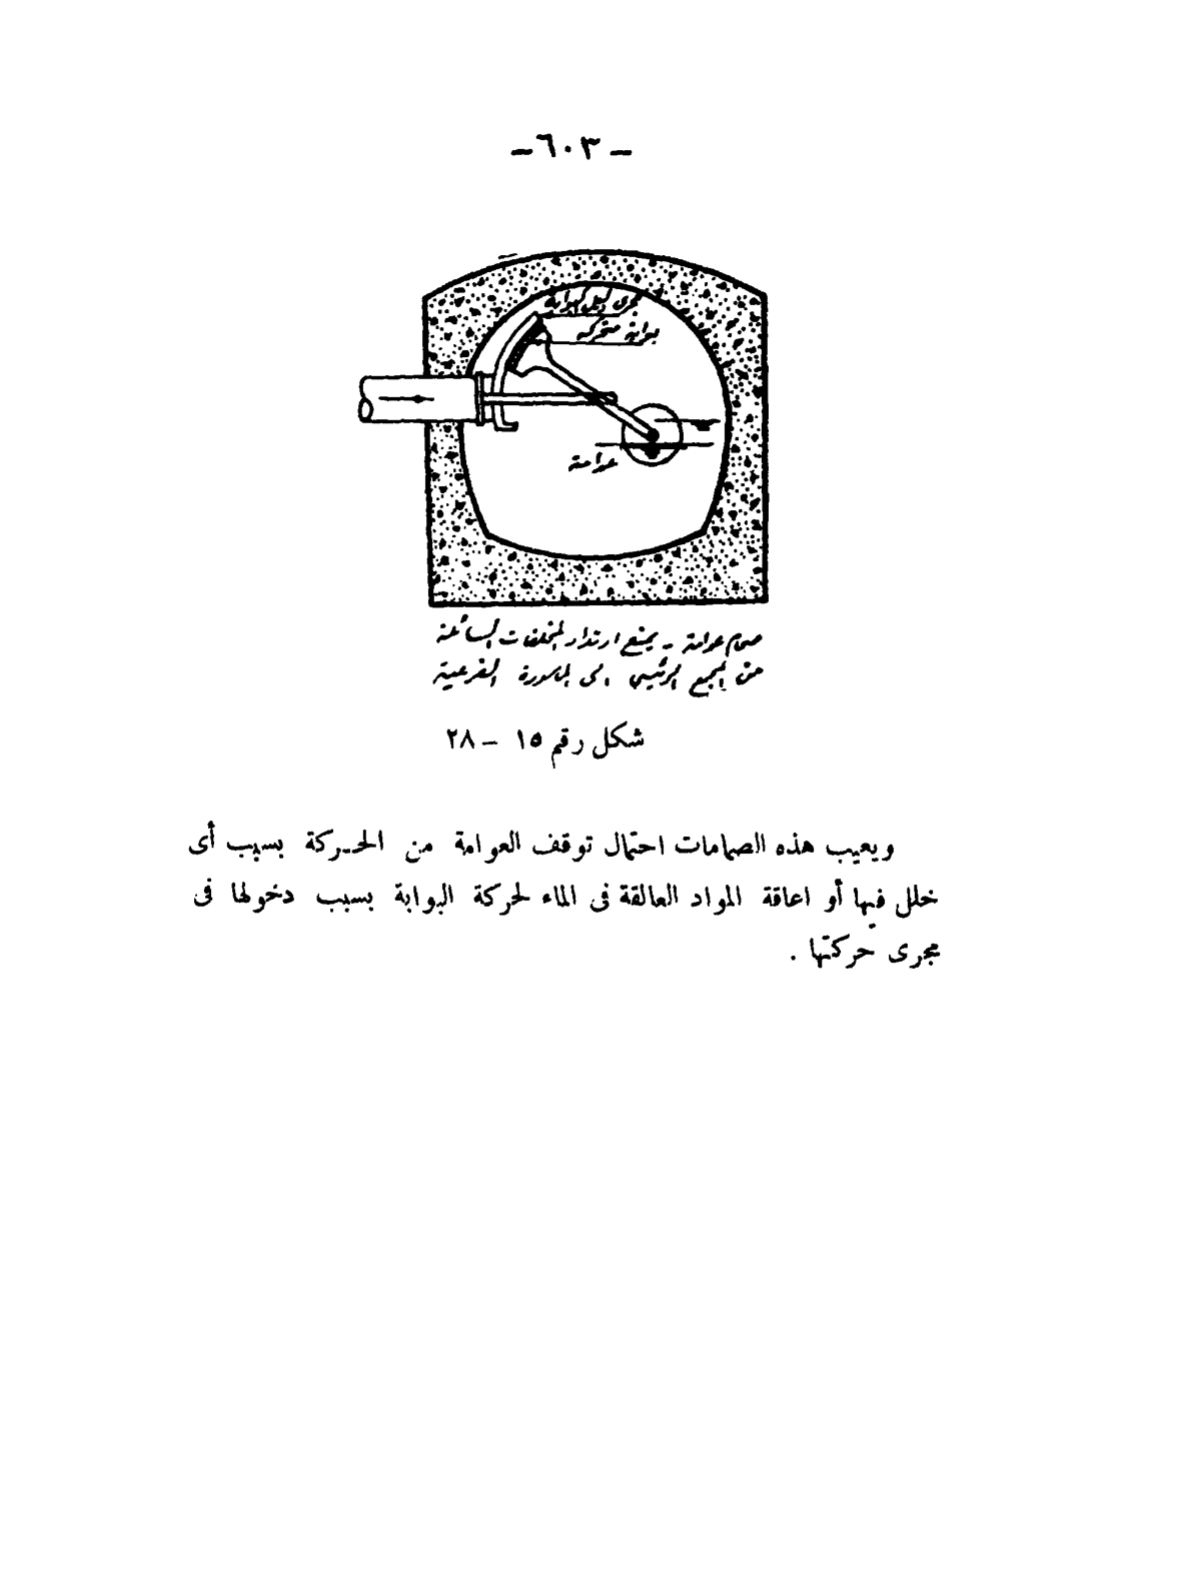 -٦٠٣-
بوابة متحركه
عوامة
صمام عوامة - يمنع ارتداد المخلفات السائلة
من المجمع الرئيسي الى الماسورة الفرعية
شكل رقم ١٥ - ٢٨
ويعيب هذه الصمامات احتمال توقف العوامة من الحـركة بسبب أى
خلل فيها أو اعاقة المواد العالقة فى الماء لحركة البوابة بسبب دخولها فى
مجرى حركتها .